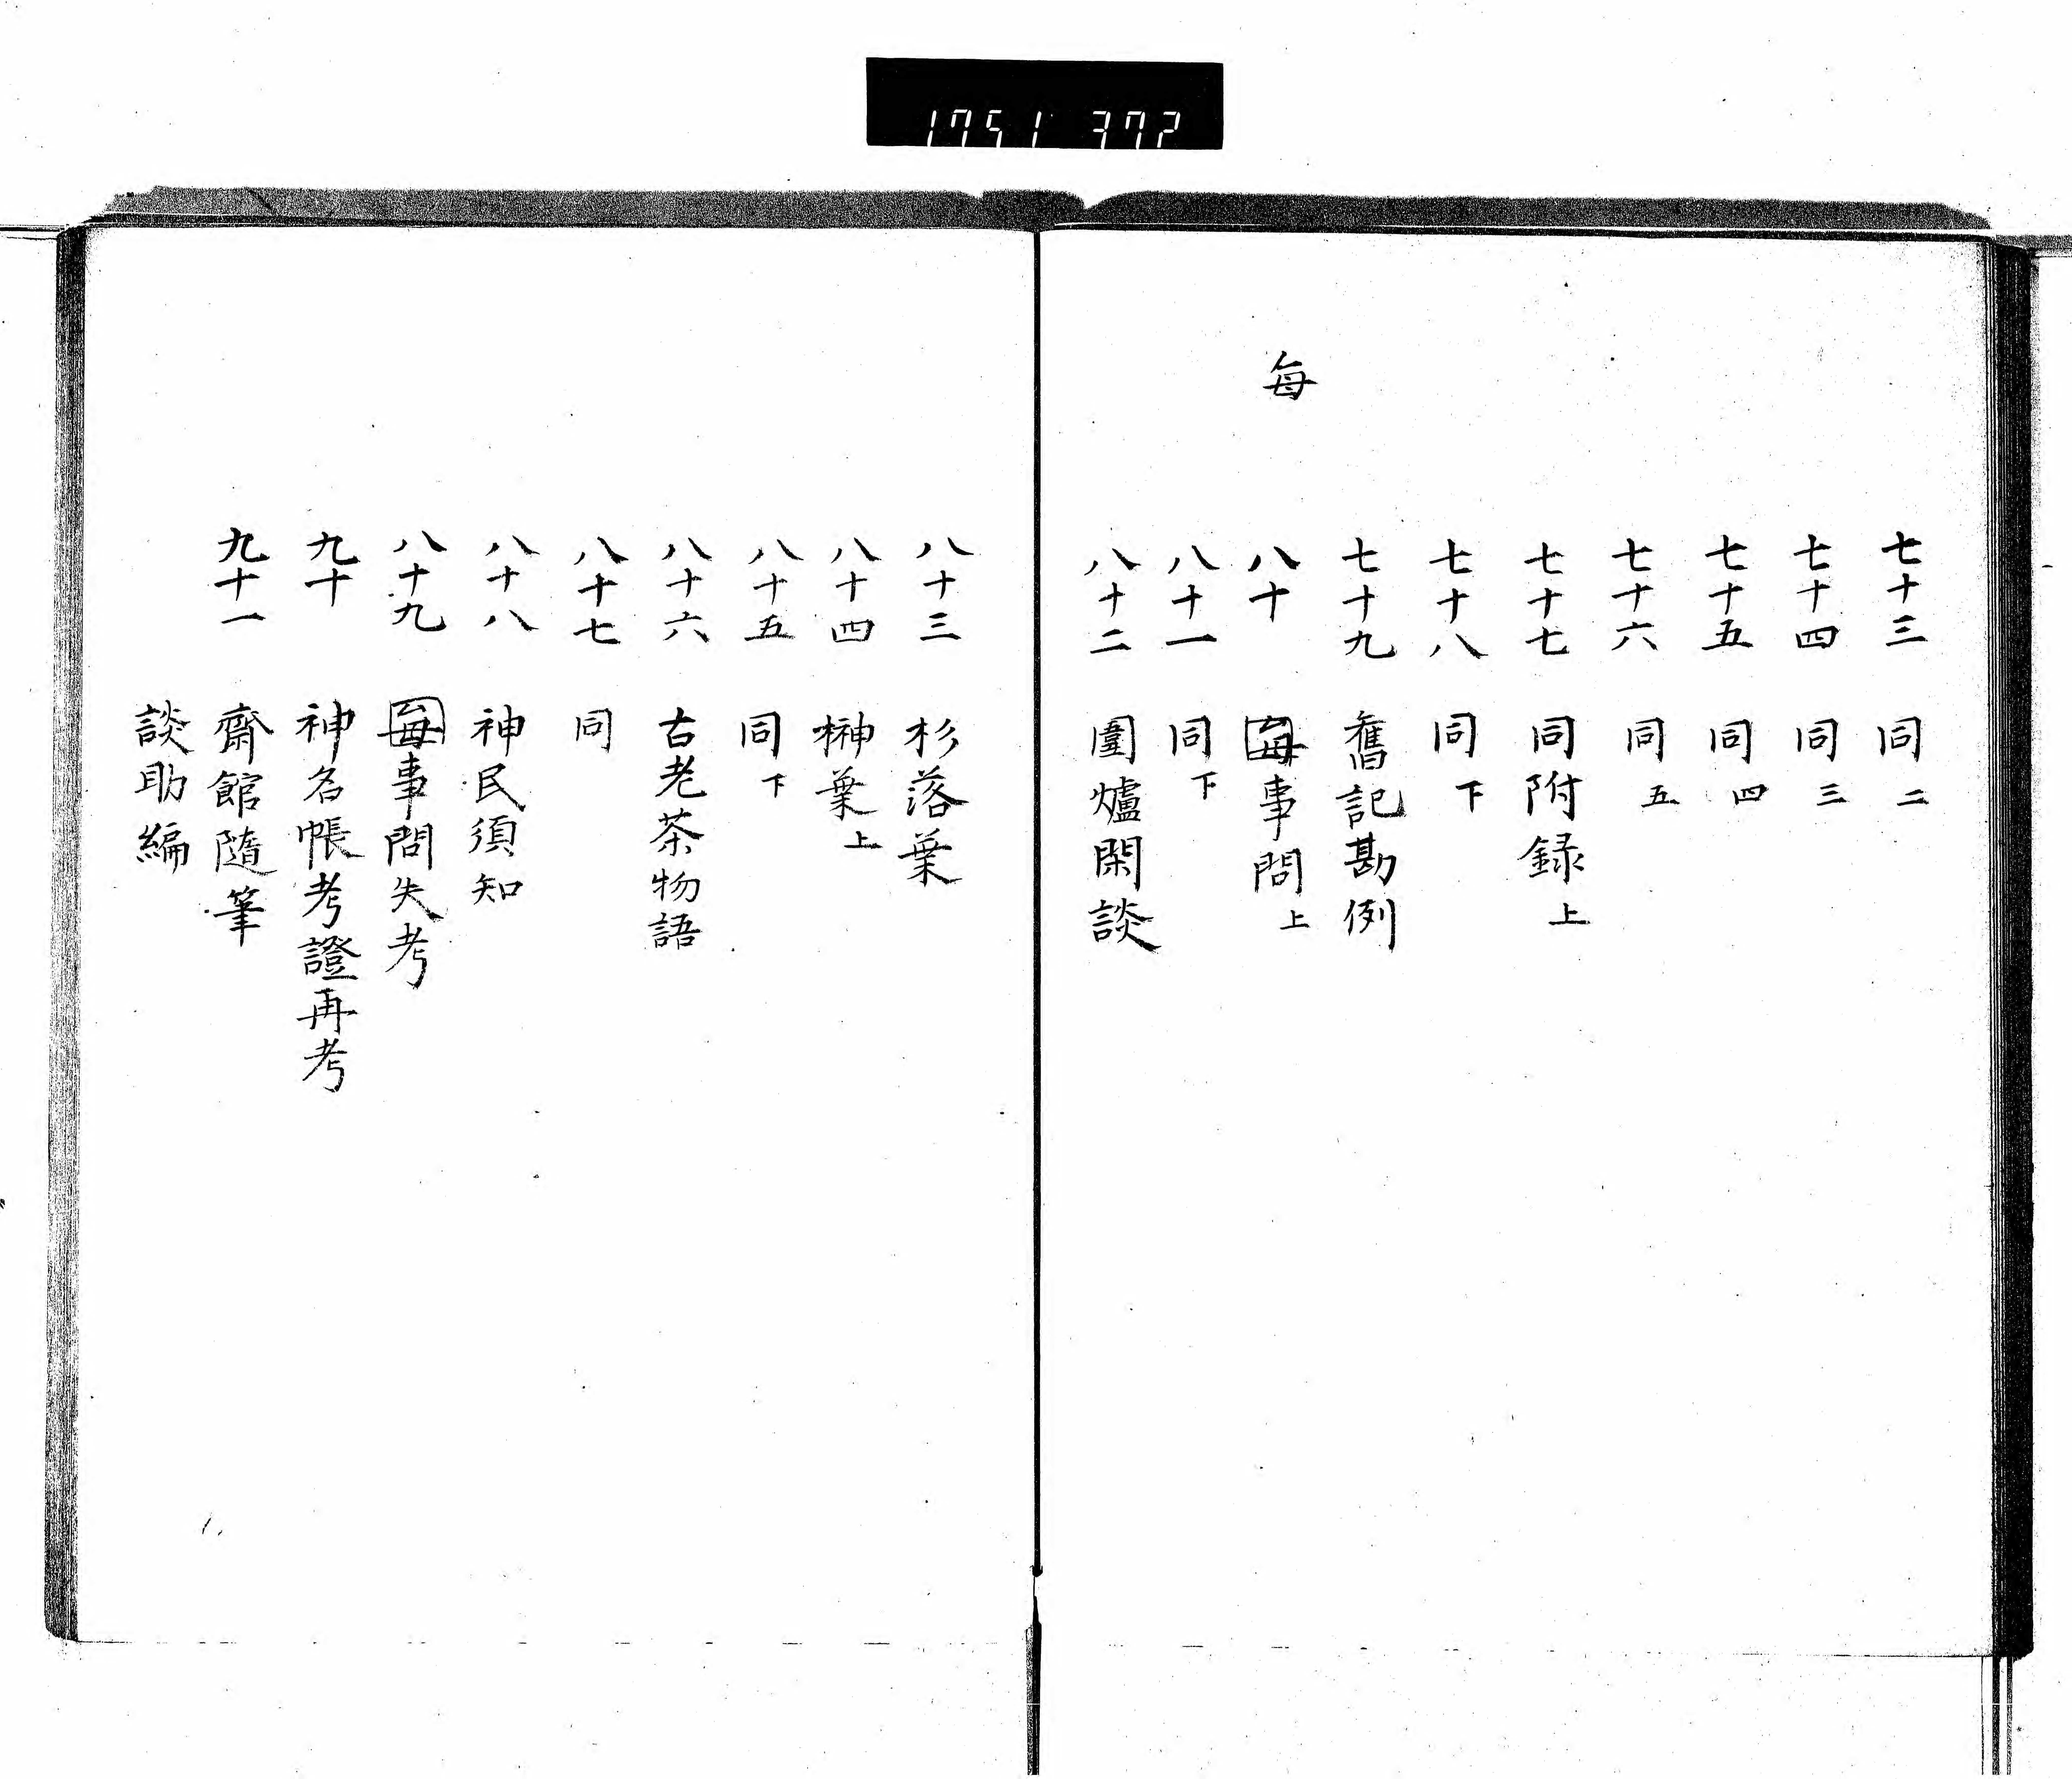 1751 372
毎
七十三 同 二
七十四 同 三
七十五 同 四
七十六 同 五
七十七 同附録 上
七十八 同 下
七十九 舊記勘例
八十 毎事問 上
八十一 同 下
八十二 圍爐閑談
八十三 杉落葉
八十四 榊葉 上
八十五 同 下
八十六 古老茶物語
八十七 同
八十八 神民須知
八十九 毎事問失考
九十 神名帳考證再考
九十一 齋館隨筆
談助編